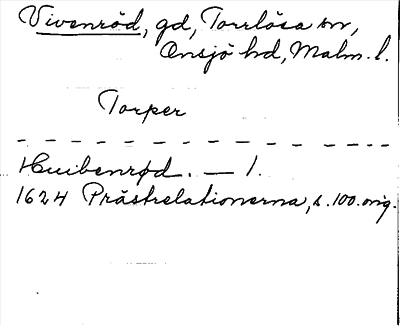 Vivenröd, gd, Torrlösa sn,
Onsjö hd, Malm. l.
Torper
Huibenrød. — 1.
1624 Prästrelationerna, s. 100. orig.